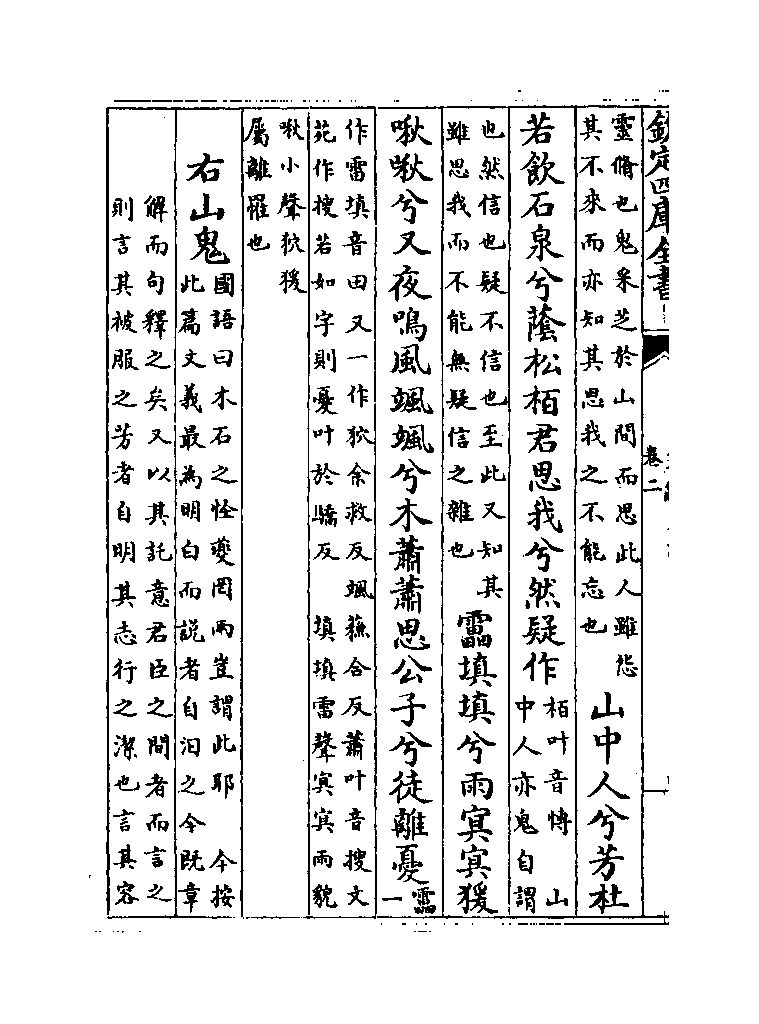 欽定四庫全書
卷二
靈脩也鬼采芝於山間而思此人雖怨
其不來而亦知其思我之不能忘也
山中人兮芳杜
若飲石泉兮蔭松栢君思我兮然疑作
栢叶音愽 山
中人亦鬼自謂
也然信也疑不信也至此又知其
雖思我而不能無疑信之雜也
靁填填兮雨冥冥猨
啾啾兮又夜鳴風颯颯兮木蕭蕭思公子兮徒離憂
靁
一
作雷填音田又一作狖余救反颯蘓合反蕭叶音搜文
苑作搜若如字則憂叶於驕反 填填雷聲冥冥雨貌
啾小聲狖猨
屬離罹也
右山鬼
國語曰木石之怪夔罔兩豈謂此耶 今按
此篇文義最為明白而説者自汩之今既章
解而句釋之矣又以其託意君臣之間者而言之
則言其被服之芳者自明其志行之潔也言其容